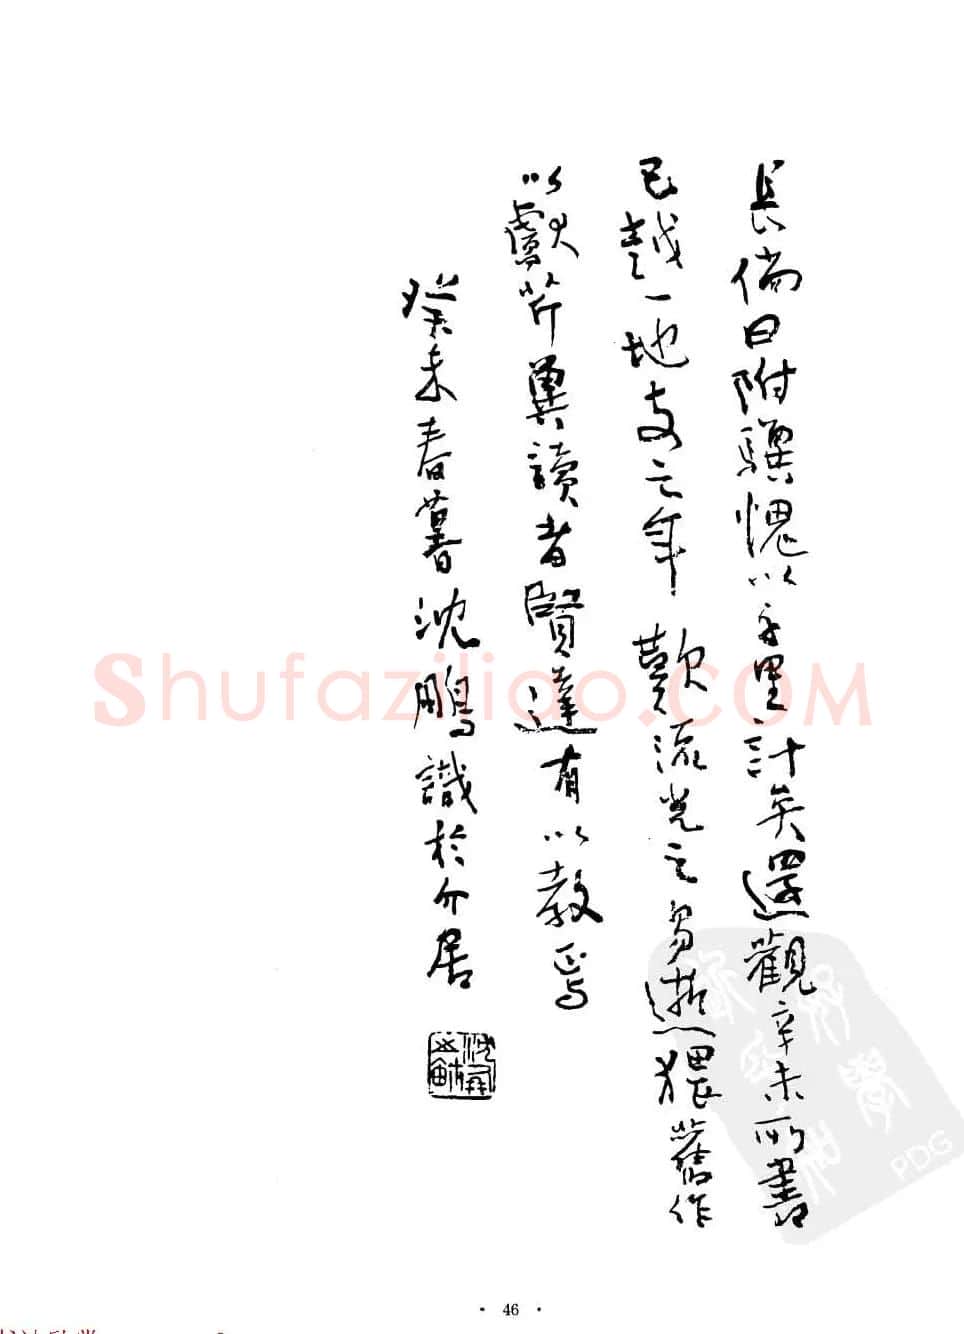 長倘曰附驥愧以千里計矣還觀辛未所書
已越一地支之年歎流光之易逝猥舊作
以獻芹冀讀者賢達有以教焉
癸未春暮沈鵬識於介居
Shufaziliao.COM
PDG
· 46 ·